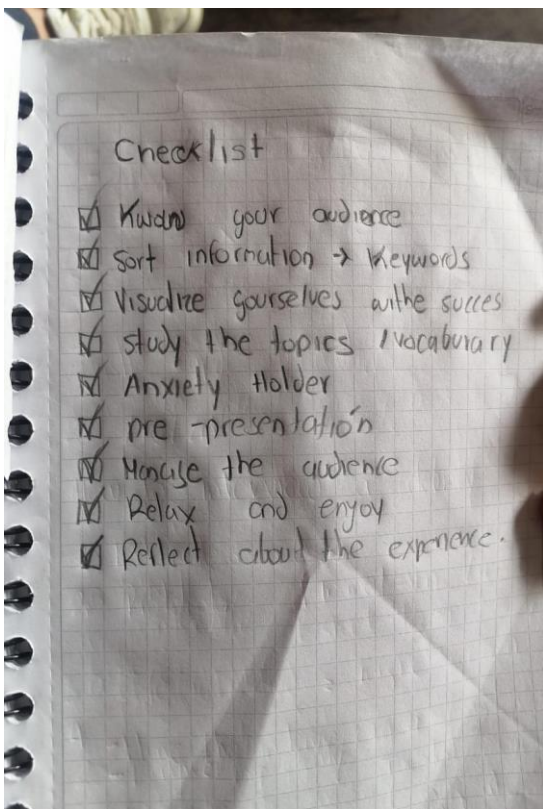 Checklist
Kwdn your audience
Sort information → Keywords
Visualize yourselves withe succes
Study the topics / vocaburary
Anxiety Holder
pre-presentatión
Manage the audience
Relax and enjoy
Reflect about the experience.